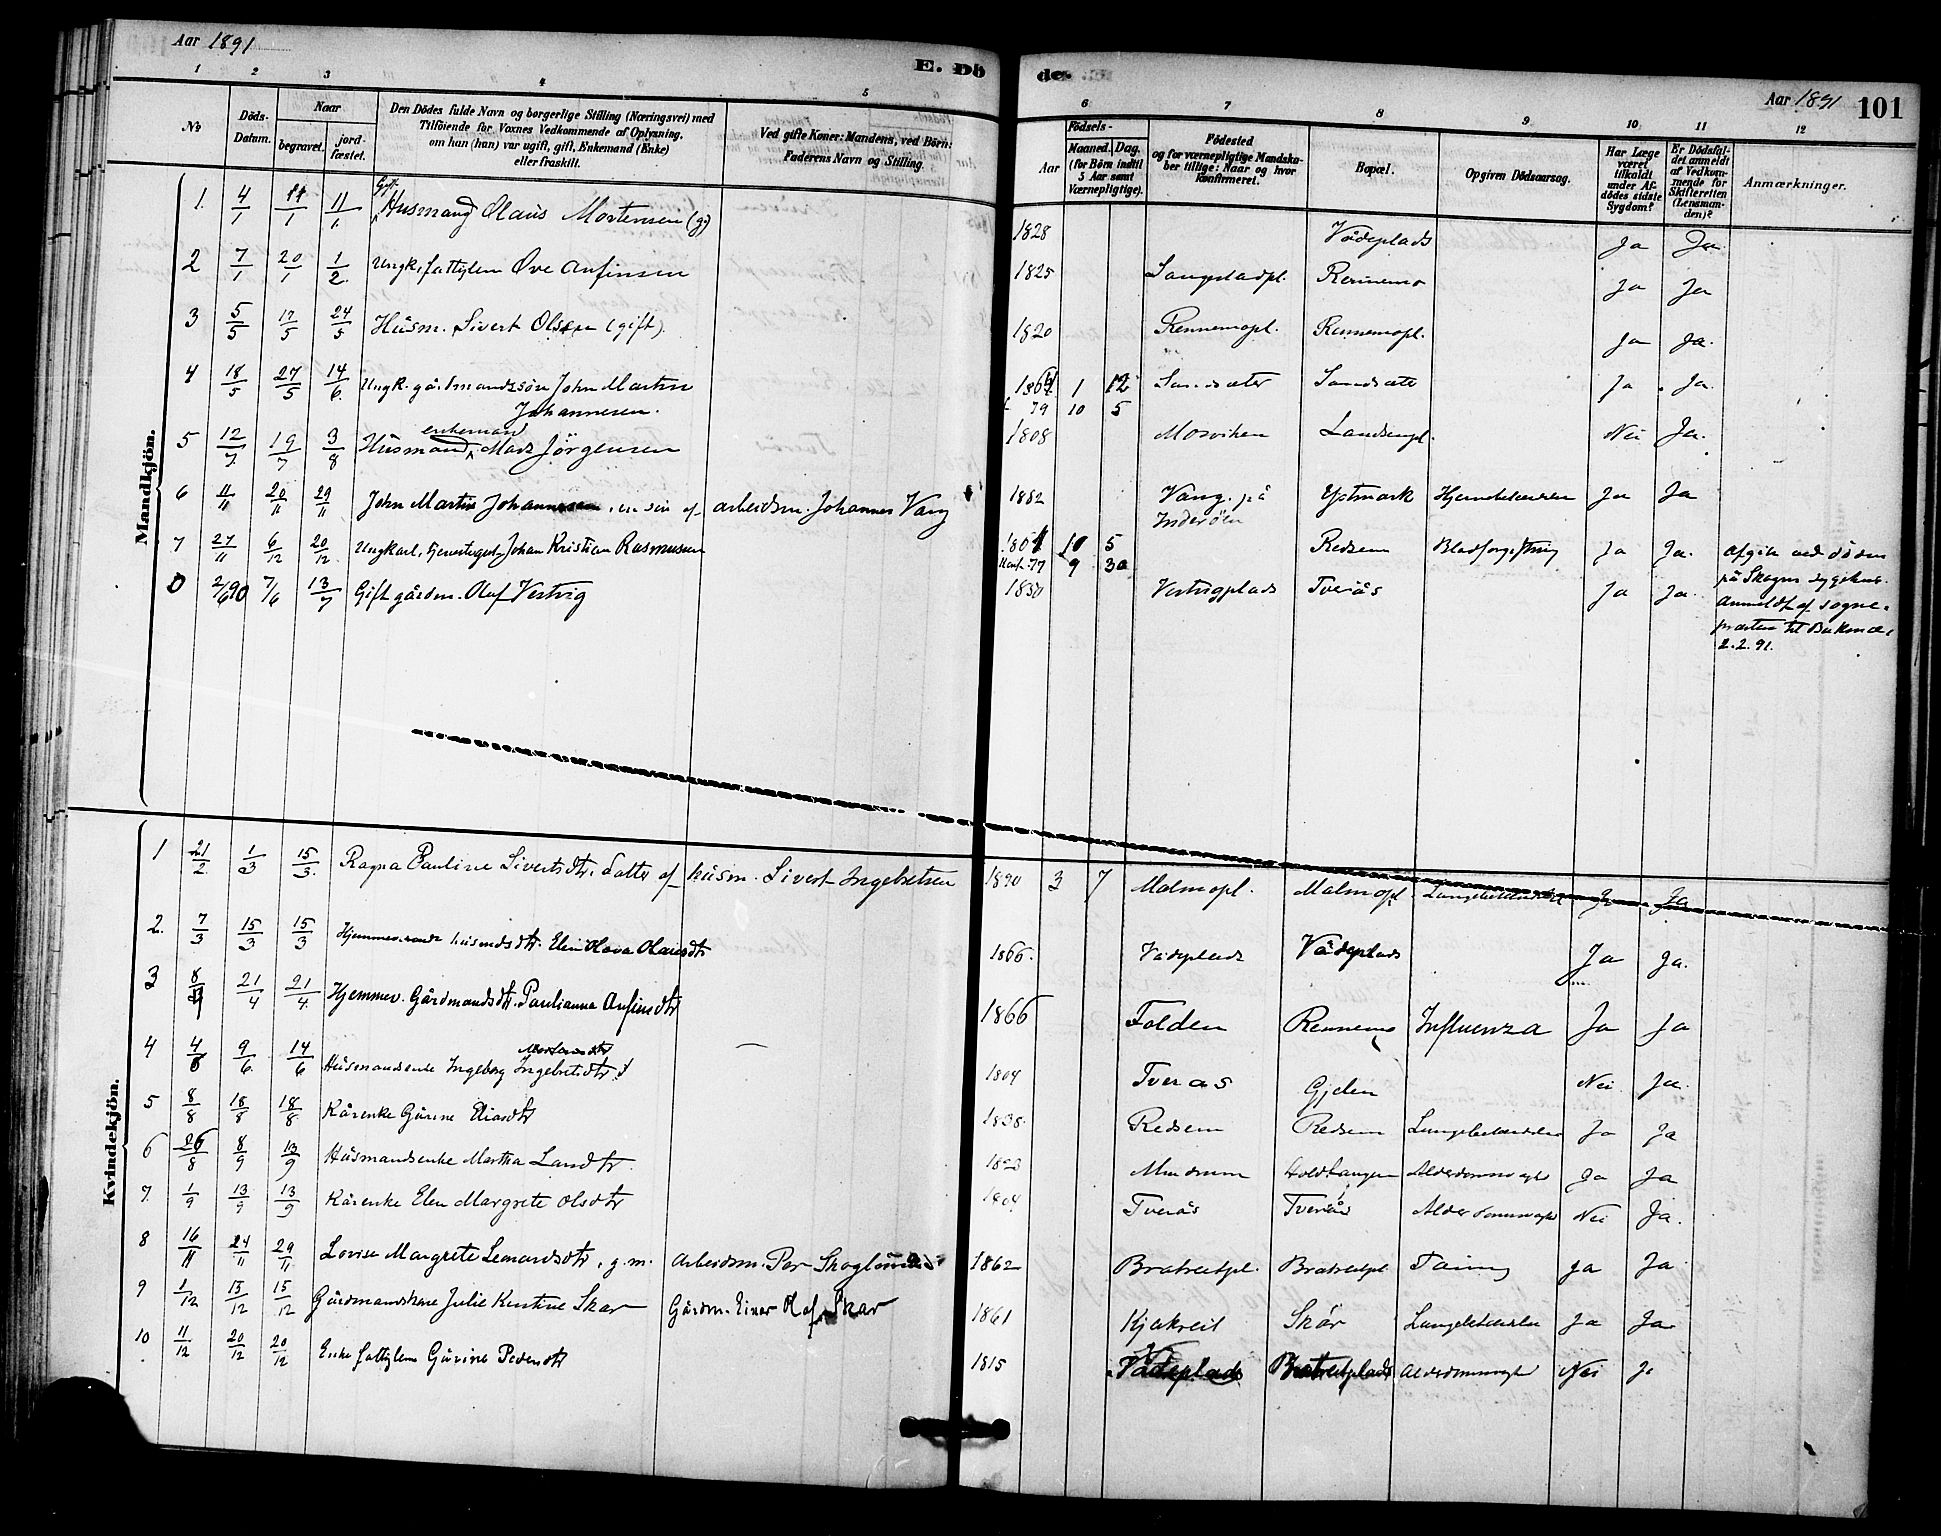 Aar 1891
E. Dö
de. E.
Aar 1891
101
1 2 3 4 5
6 7 8 9 10 11 12
No
Döds-
Datum.
Naar
begravet.
jord-
fæstet.
Den Dödes fulde Navn og borgerlige Stilling (Næringsvei) med
Tilföiende for Voxnes Vedkommende af Oplysning,
om han (hun) var ugift, gift, Enkemand (Enke)
eller fraskilt.
Ved gifte Koner: Mandens, ved Börn:
Faderens Navn og Stilling.
Födsels-
Aar
Maaned. Dag.
(for Börn indtil
5 Aar samt
Værnepligtige).
Födested
og for værnepligtige Mandska-
ber tillige: Naar og hvor
konfirmeret.
Bopæl.
Opgiven Dödsaarsag.
Har Læge
været
tilkaldt
under Af-
dödes sidste
Sygdom?
Er Dödsfal-
det anmeldt
af Vedkom-
mende for
Skifteretten
(Lensman-
den)?
Anmærkninger.
Mandkjön.
1. 4/1 11/1 11/1 Gift Husmand Olaus Mortensen (g) 1828 Vådeplads Ja Ja
2 7/1 20/1 1/2 Ungk. fattiglem Ove Anfinsen 1825 Rennemo Ja Ja
3 5/5 17/5 24/5 Husm. Sivert Olsen (gift) 1820 Rennemopl. Rennemopl. Ja Ja.
4 18/5 27/5 14/6 Ungk. gårdmandssön John Martin 1 12 Ja Ja
Johannesen. 79 10 5
enkemand
5 12/7 19/7 3/8 Husmand Mads Jörgensen 1808 Mosviken Nei Ja.
6 11/11 20/11 29/11 John Martin Johannesen, en sön af arbeidsm. Johannes Vang 1882 Vang på Ystmark Ja Ja
Inderöen
7 27/11 6/12 20/12 Ungkarl, tjenestegut Johan Kristian Rasmussen 10 5 Redsem Blodforgiftning Ja Ja. Afgik ved döden
77 9 30 på Skogn sygehus.
0 2/6 90 7/6 13/7 Gift gårdm. Oluf Vestvig Vestvigplads Tverås Ja Ja. Anmeldt af sogne-
præsten til
2.2.91.
Kvindekjön.
1 21/2 1/3 15/3 Ragna Pauline Sivertsdtr. datter af husm. Sivert Ingebretsen 1890 3 7 Malmopl. Malmopl. Lungebetændelse Ja Ja
2. 7/3 15/3 15/3 Hjemmev. husmdsdtr. Elen Olava Olausdtr 1866. Vådeplads Vådeplads Ja Ja.
3 21/4 21/4 Hjemmev. Gårdmandsdtr. Paulianna Anfinsdtr 1866 Folden Rennemo Influenza Ja Ja
4 9/6 14/6 Husmandsenke Ingeborg Ingebretsdtr 1804 Tverås Gjelen Nei Ja.
5 8/8 18/8 18/8 Kårenke Gurine Eliasdtr 1838. Redsem Redsem Lungebetændelse Ja Ja
6 26/8 8/9 13/9 Husmandsenke Martha 1823 Alderdomssvaghed Ja Ja
7. 1/9 13/9 13/9 Kårenke Elen Margrete Olsdtr 1804 Tverås Tverås Alderdomssvaghed Nei Ja.
8 16/11 24/11 29/11 Lovise Margrete Leonardsdtr, g.m. Arbeidsm. Per Skoglund 1862 Bratreitpl. Bratreitpl Tæring Ja Ja
9 1/12 13/12 15/12 Gårdmandskone Julie Kirstine Skar Gårdm. Einar Olaf Skar 1861 Kjakreit Skar Lungebetændelse Ja Ja
10 11/12 20/12 20/12 Enke fattiglem Gurine Pedersdtr 1815 Vådeplads Bratreitplads Alderdomssvaghed Nei Ja